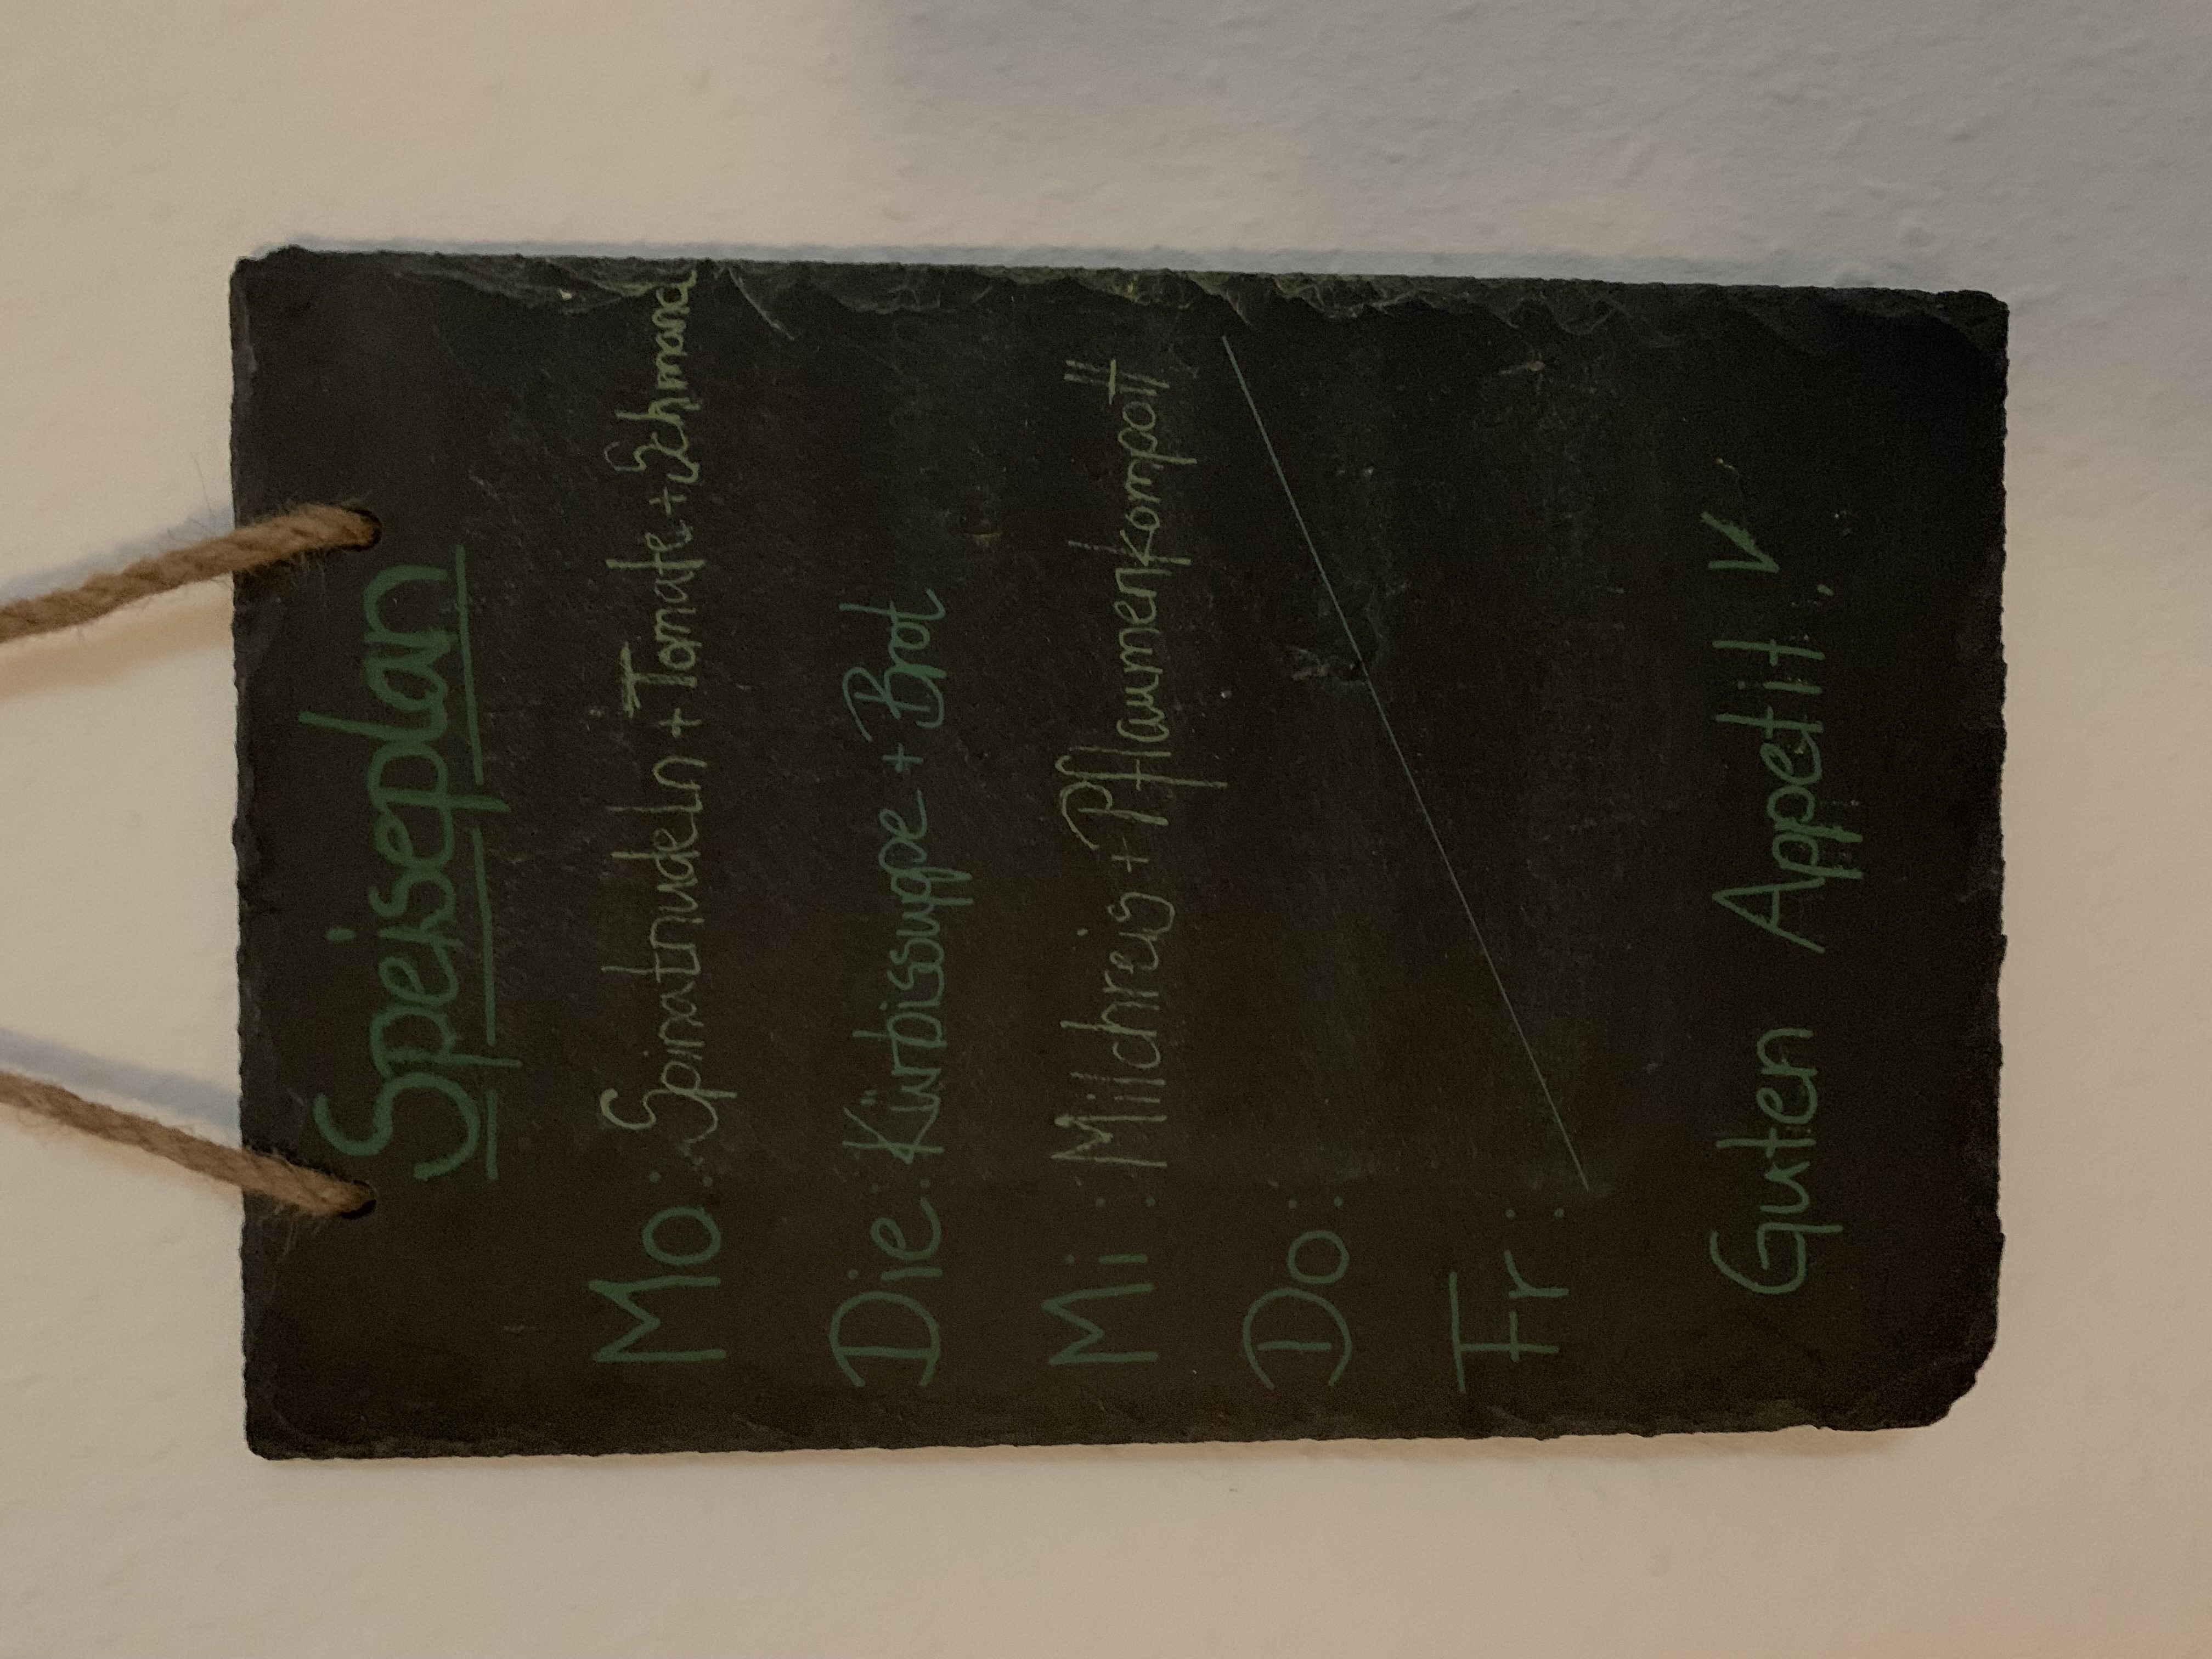 Speiseplan
Mo: Spinatnudeln + Tomate + Schmand
Die: Kürbissuppe + Brot
Mi: Milchreis + Pflaumenkompott
Do:
Fr:
Guten Appetit!